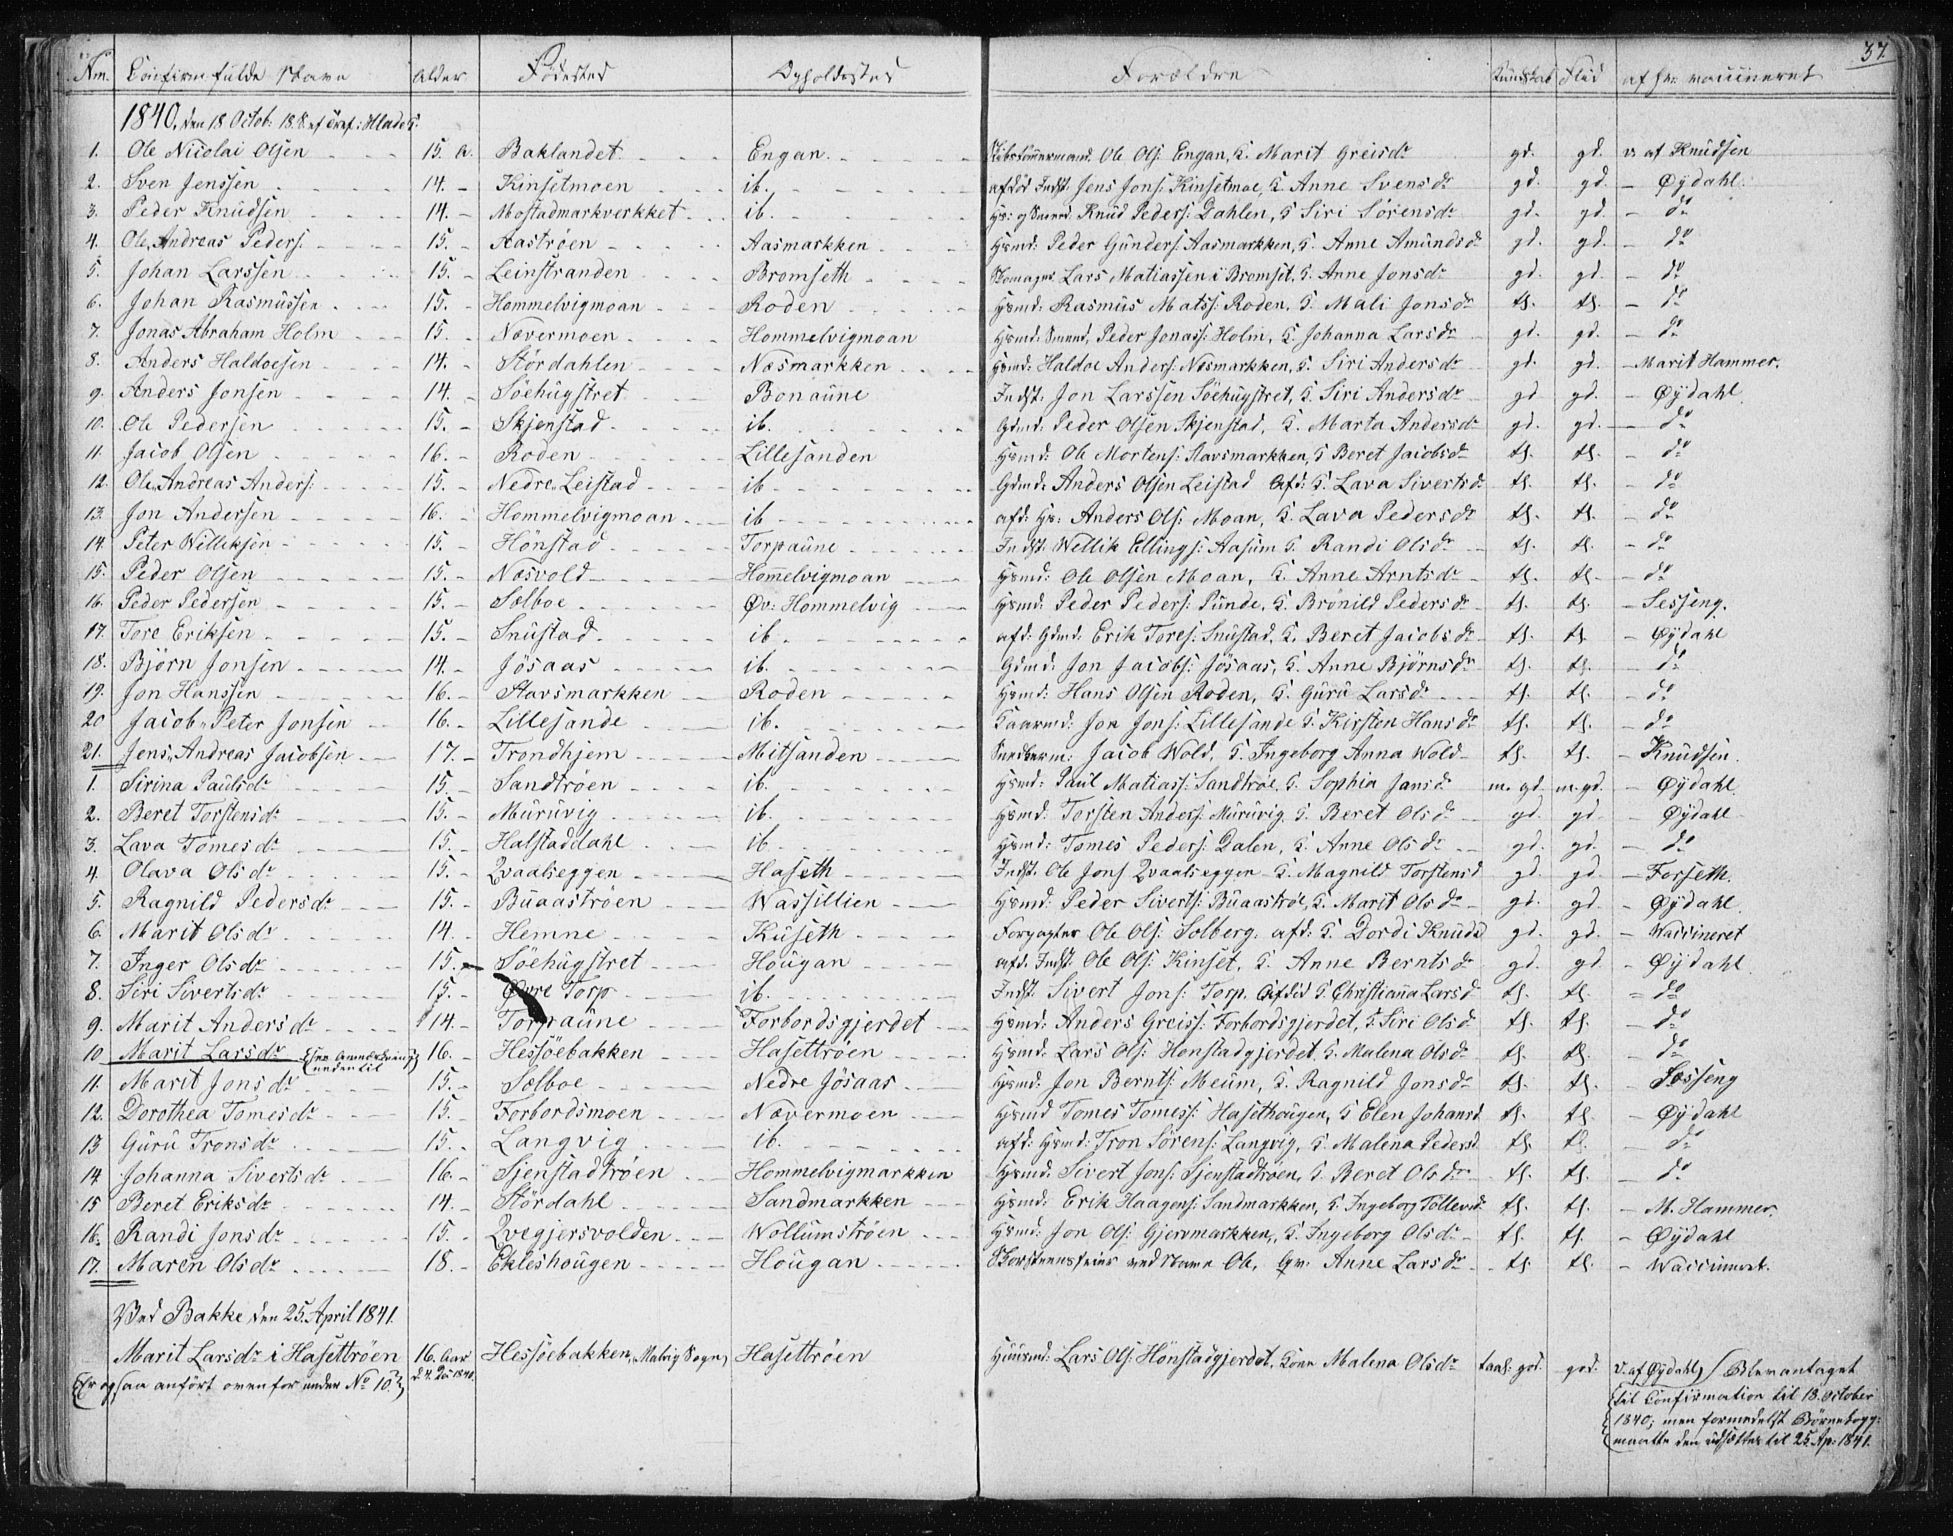 37.
Nm. Confirm: fulde Navn Alder Fødested Opholdssted Forældre Kundskab Flid af hv: vaccineret
1840, den 18 Octob:
1. Ole Nicolai Olsen 15. a. Baklandet Engan Skibstømmermand Ole Ols: Engan, K. Marit Greisdr gd. gd. v: af Knudsen
2. Sven Jenssen 14. Kinsetmoen ib. afdød Indst: Jens Jons: Kinsetmoe, K. Anne Svensdr gd. gd. – Øydahl
3. Peder Knudsen 14. Mostadmarkverkket ib. Hs: og Smed: Knud Peders: Dahlen, K. Siri Sörensdr gd. gd. – do
4. Ole Andreas Peders: 15. Aaströen Aasmarkken Hsmd: Peder Gunders: Aasmarkken, K. Anne Amundsdr gd. gd. – do
5. Johan Larssen 15. Leinstranden Bromseth Skomager Lars Matiassen i Bromset, K. Anne Jonsdr gd. gd. – do
6. Johan Rasmussen 15. Hommelvigmoan Roden Hsmd: Rasmus Matss: Roden, K. Mali Jonsdr tl. tl. – do
7. Jonas Abraham Holm 15. Nævermoen Hommelvigmoan Hsmd: Smed, Peder Jonas: Holm, K. Johanna Larsdr gd. gd. – do
8. Anders Haldoesen 14. Stördahlen Næsmarkken Hsmd: Haldoe Anders: Næsmarkken, K. Siri Andersdr gd. gd. – Marit Hammer.
9. Anders Jonsen 14. Söehugstret Bonaune Indst: Jon Larssen Söehugstret, K. Siri Andersdr gd gd. – Øydahl
10. Ole Pedersen 15. Skjenstad ib. Gdmd: Peder Olsen Skjenstad, K. Marta Andersdr gd. gd. – do
11. Jacob Olsen 16. Roden Lillesanden Hsmd: Ole Mortens: Stavsmarkken, K Beret Jacobsdr tl. tl. – do
12. Ole Andreas Anders: 15. Nedre Leistad ib Gdmd: Anders Olsen Leistad Afd: K. Lava Sivertsdr tl. tl. – do
13. Jon Andersen 16. Hommelvigmoan ib afd: Hs: Anders Ols: Moan, K. Lava Pedersdr tl. tl. – do
14 Peter Williksen 15. Hönstad Torpaune Indst: Wellik Ellings: Aasum K. Randi Olsdr tl. tl. – do
15. Peder Olsen 15. Næsvold Hommelvigmoan Hsmd: Ole Olsen Moan, K. Anne Arntsdr tl. tl. – do
16. Peder Pedersen 15. Sælboe Øv: Hommelvig Hsmd: Peder Peders: Sunde, K. Brönild Pedersdr tl. tl. – Sesseng.
17. Tore Eriksen 15. Snustad ib. afd: Gdmd: Erik Tores: Snustad, K. Beret Jacobsdr tl. tl. – Øydahl
18. Bjørn Jonsen 14. Jösaas ib. Gdmd: Jon Jacobs: Jösaas, K. Anne Bjørnsdr tl. tl. – do
19. Jon Hanssen 16. Stavsmarkken Roden Hsmd: Hans Olsen Roden, K. Guru Larsdr tl. tl. – do
20 Jacob Peter Jonsen 16. Lillesande ib. Jon Jons: Lillesande K. Kirsten Hansdr tl. tl. – do
21. Jens Andreas Jacobsen 17. Trondhjem Mitsanden Jacob Wold, K. Ingeborg Anna Wold tl. tl. – Knudsen.
1. Sirina Paulsdr 15. Sandtröen ib. Hsmd: Paul Matiass: Sandtröe, K. Sophia Jansdr m. gd. m. gd. – Øydahl
2. Beret Torstensdr 15. Muruvig ib. Hsmd: Torsten Anders: Muruvig K. Beret Olsdr gd. gd. – Øydahl
3. Lava Tomesdr 15. Halstaddahl ib. Hsmd: Tomes Peders: Dalen, K. Anne Olsdr gd. gd. – do
4. Olava Olsdr 15. Qvaalseggen Haseth Indst: Ole Jons Qvaalseggen K. Magnild Torstensd gd. gd. – Forseth.
5. Ragnild Pedersdr 15. Buaaströen Wassillien Hsmd: Peder Siverts: Buaaströe, K. Marit Olsdr gd. gd. – Øydahl.
6. Marit Olsdr 14. Hemne Kuseth Forpagter Ole Ols: Solberg. afd: K. Dordi Knuds gd. gd. – Waccineret
7. Inger Olsdr 15. Söehugstret Hougan afd: Indst: Ole Ols: Kinset, K. Anne Berntsdr gd. gd – Øydahl
8. Siri Sivertsdr 15. Øvre Torp ib. Indst: Sivert Jons: Torp. Afdød K. Christianna Larsd tl. tl. – do
9. Marit Andersdr 14. Torpaune Forbordsgjerdet Hsmd: Anders Greiss: Forbordsgjerdet, K. Siri Olsd tl. tl. – do
10 Marit Larsdr (See Anmærkning nedentil) 16. Hessöebakken Hasettröen Hsmd: Lars Ols: Hønstadgjerdet, K. Malena Olsdr tl. tl. – do
11. Marit Jonsdr 15. Sælboe Nedre Jösaas Hsmd: Jon Bernts: Meum, K. Ragnild Jonsdr tl. tl. – Sesseng
12. Dorothea Tomesdr 15. Forbordsmoen Nævermoen Hsmd Tomes Tomess: Hasethougen, K Elen Johansd tl. tl. – Øydahl
13 Guru Tronsdr 15. Langvig ib. afd: Hsmd: Tron Sörens: Langvig, K. Malena Pedersd tl tl. – do
14 Johanna Sivertsdr 16. Sjenstadtröen Hommelvigmarkken Hsmd: Sivert Jons: Sjenstadtröen, K. Beret Olsdr tl. tl. – do
15 Beret Eriksdr 14. Stördahl Sandmarkken Hsmd: Erik Haagens: Sandmarkken, K. Ingeborg Tollevsd tl. tl. – M. Hammer.
16. Randi Jonsdr 15. Qvegjersvolden Wollumströen Hsmd: Jon Ols: Gjervmarkken, K. Ingeborg Olsdr tl. tl. – Øydahl
17. Maren Olsdr 18. Ekleshougen Hougan Skorsteensfeier ved Navn Ole, Qv: Anne Larsdr tl. tl. – Waccineret.
Ved Bakke den 25. April 1841.
Marit Larsdr i Hasettröen 16. Aar Hessöebakken, Malvig Sogn, Hasettröen Huusmd: Lars Ols: Hönstadgjerdet, Kone Malena Olsdr taal: god. god. V. af Øydahl) Blev antaget
(Er ogsaa anført ovenfor under No 10.) til Confirmation til 18. October
1840; men formedelst Børnekopp:
maatte den udsættes til 25 Ap: 1841.